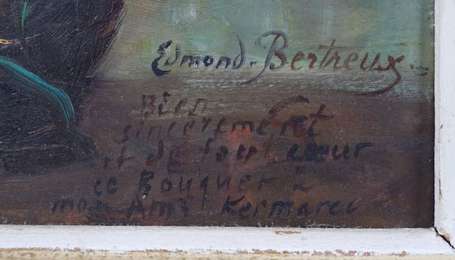 Edmond. Bertreux
Bien
sincèrement
et de tout coeur
ce Bouquet à
mon Ami Kermarec